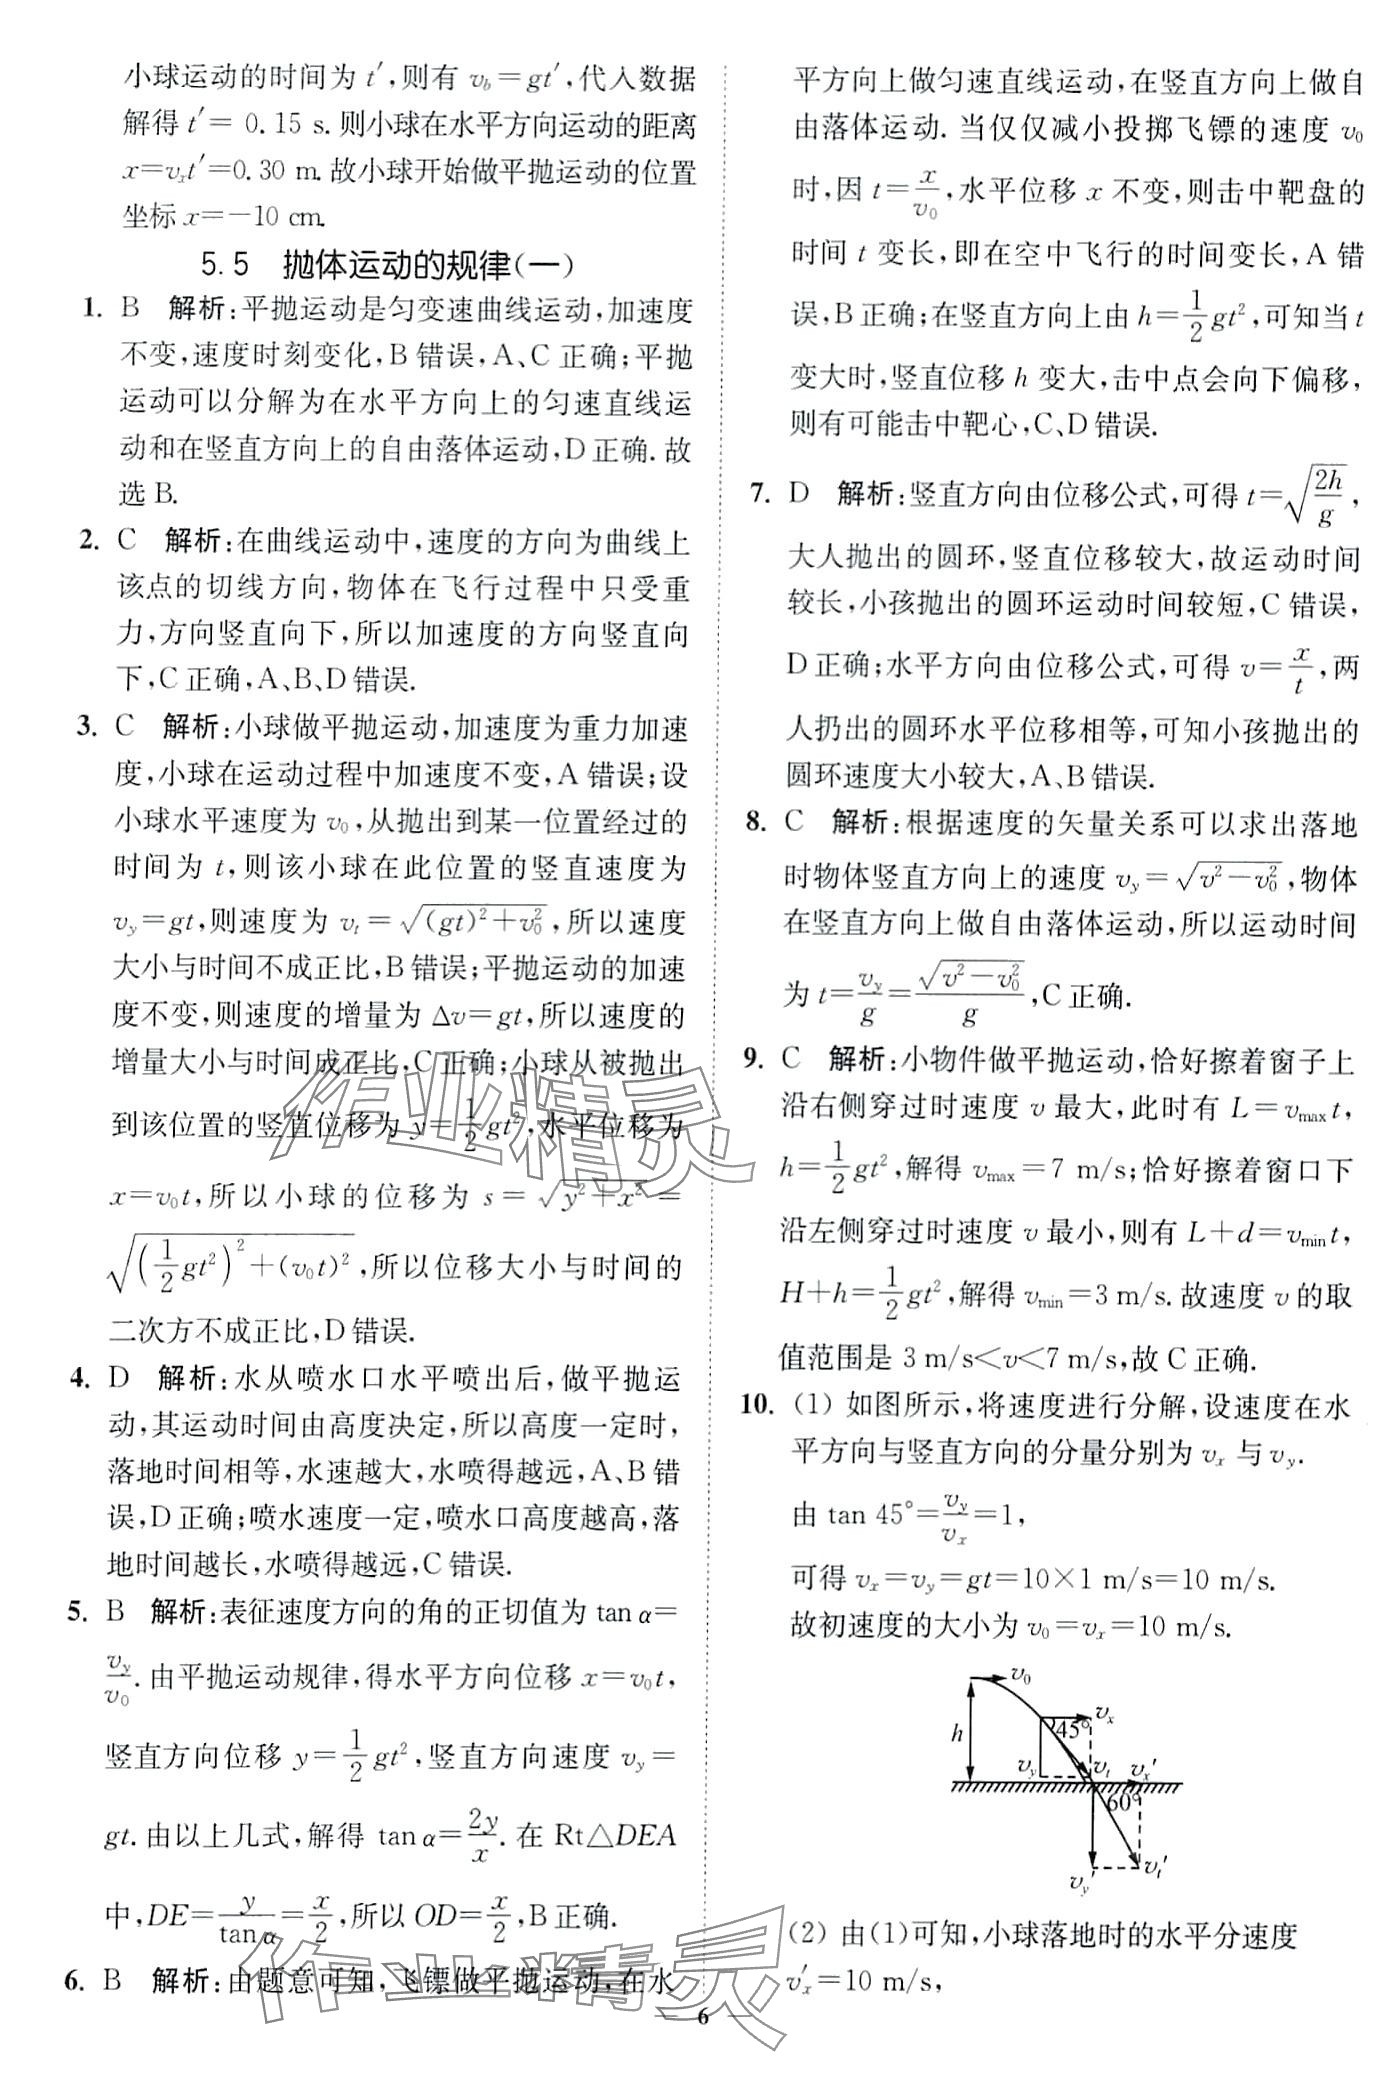 小球运动的时间为 t′,则有 v_b=gt′,代入数据
解得 t′= 0.15 s. 则小球在水平方向运动的距离
x=v_xt′=0.30 m. 故小球开始做平抛运动的位置
坐标 x=-10 cm.
5.5 抛体运动的规律(一)
1. B 解析:平抛运动是匀变速曲线运动,加速度
不变,速度时刻变化,B 错误,A、C 正确;平抛
运动可以分解为在水平方向上的匀速直线运
动和在竖直方向上的自由落体运动,D 正确. 故
选 B.
2. C 解析:在曲线运动中,速度的方向为曲线上
该点的切线方向,物体在飞行过程中只受重
力,方向竖直向下,所以加速度的方向竖直向
下,C 正确,A、B、D 错误.
3. C 解析:小球做平抛运动,加速度为重力加速
度,小球在运动过程中加速度不变,A 错误;设
小球水平速度为 v₀,从抛出到某一位置经过的
时间为 t,则该小球在此位置的竖直速度为
v_y=gt,则速度为 v_t=√((gt)²+v₀²),所以速度
大小与时间不成正比,B 错误;平抛运动的加速
度不变,则速度的增量为 Δv=gt,所以速度的
增量大小与时间成正比,C 正确;小球从被抛出
到该位置的竖直位移为 y=1/2gt²,水平位移为
x=v₀t,所以小球的位移为 s=√(y²+x²)=
√((1/2gt²)²+(v₀t)²),所以位移大小与时间的
二次方不成正比,D 错误.
4. D 解析:水从喷水口水平喷出后,做平抛运
动,其运动时间由高度决定,所以高度一定时,
落地时间相等,水速越大,水喷得越远,A、B 错
误,D 正确;喷水速度一定,喷水口高度越高,落
地时间越长,水喷得越远,C 错误.
5. B 解析:表征速度方向的角的正切值为 tan α=
v_y/v₀. 由平抛运动规律,得水平方向位移 x=v₀t,
竖直方向位移 y=1/2gt²,竖直方向速度 v_y=
gt. 由以上几式,解得 tan α=2y/x. 在 Rt△DEA
中,DE=y/tan α=x/2,所以 OD=x/2,B 正确.
6. B 解析:由题意可知,飞镖做平抛运动,在水
平方向上做匀速直线运动,在竖直方向上做自
由落体运动. 当仅仅减小投掷飞镖的速度 v₀
时,因 t=x/v₀,水平位移 x 不变,则击中靶盘的
时间 t 变长,即在空中飞行的时间变长,A 错
误,B 正确;在竖直方向上由 h=1/2gt²,可知当 t
变大时,竖直位移 h 变大,击中点会向下偏移,
则有可能击中靶心,C、D 错误.
7. D 解析:竖直方向由位移公式,可得 t=√(2h/g),
大人抛出的圆环,竖直位移较大,故运动时间
较长,小孩抛出的圆环运动时间较短,C 错误,
D 正确;水平方向由位移公式,可得 v=x/t,两
人扔出的圆环水平位移相等,可知小孩抛出的
圆环速度大小较大,A、B 错误.
8. C 解析:根据速度的矢量关系可以求出落地
时物体竖直方向上的速度 v_y=√(v²-v₀²),物体
在竖直方向上做自由落体运动,所以运动时间
为 t=v_y/g=√(v²-v₀²)/g,C 正确.
9. C 解析:小物件做平抛运动,恰好擦着窗子上
沿右侧穿过时速度 v 最大,此时有 L=v_max t,
h=1/2gt²,解得 v_max=7 m/s;恰好擦着窗口下
沿左侧穿过时速度 v 最小,则有 L+d=v_min t,
H+h=1/2gt²,解得 v_min=3 m/s. 故速度 v 的取
值范围是 3 m/s<v<7 m/s,故 C 正确.
10. (1) 如图所示,将速度进行分解,设速度在水
平方向与竖直方向的分量分别为 v_x 与 v_y.
由 tan 45°=v_y/v_x=1,
可得 v_x=v_y=gt=10×1 m/s=10 m/s.
故初速度的大小为 v₀=v_x=10 m/s.
v₀
v_x
45°
h
v_y
v_t
v_x′
60°
v_y′
v_t′
(2) 由(1)可知,小球落地时的水平分速度
v_x′=10 m/s,
6
作业精灵
作业精灵